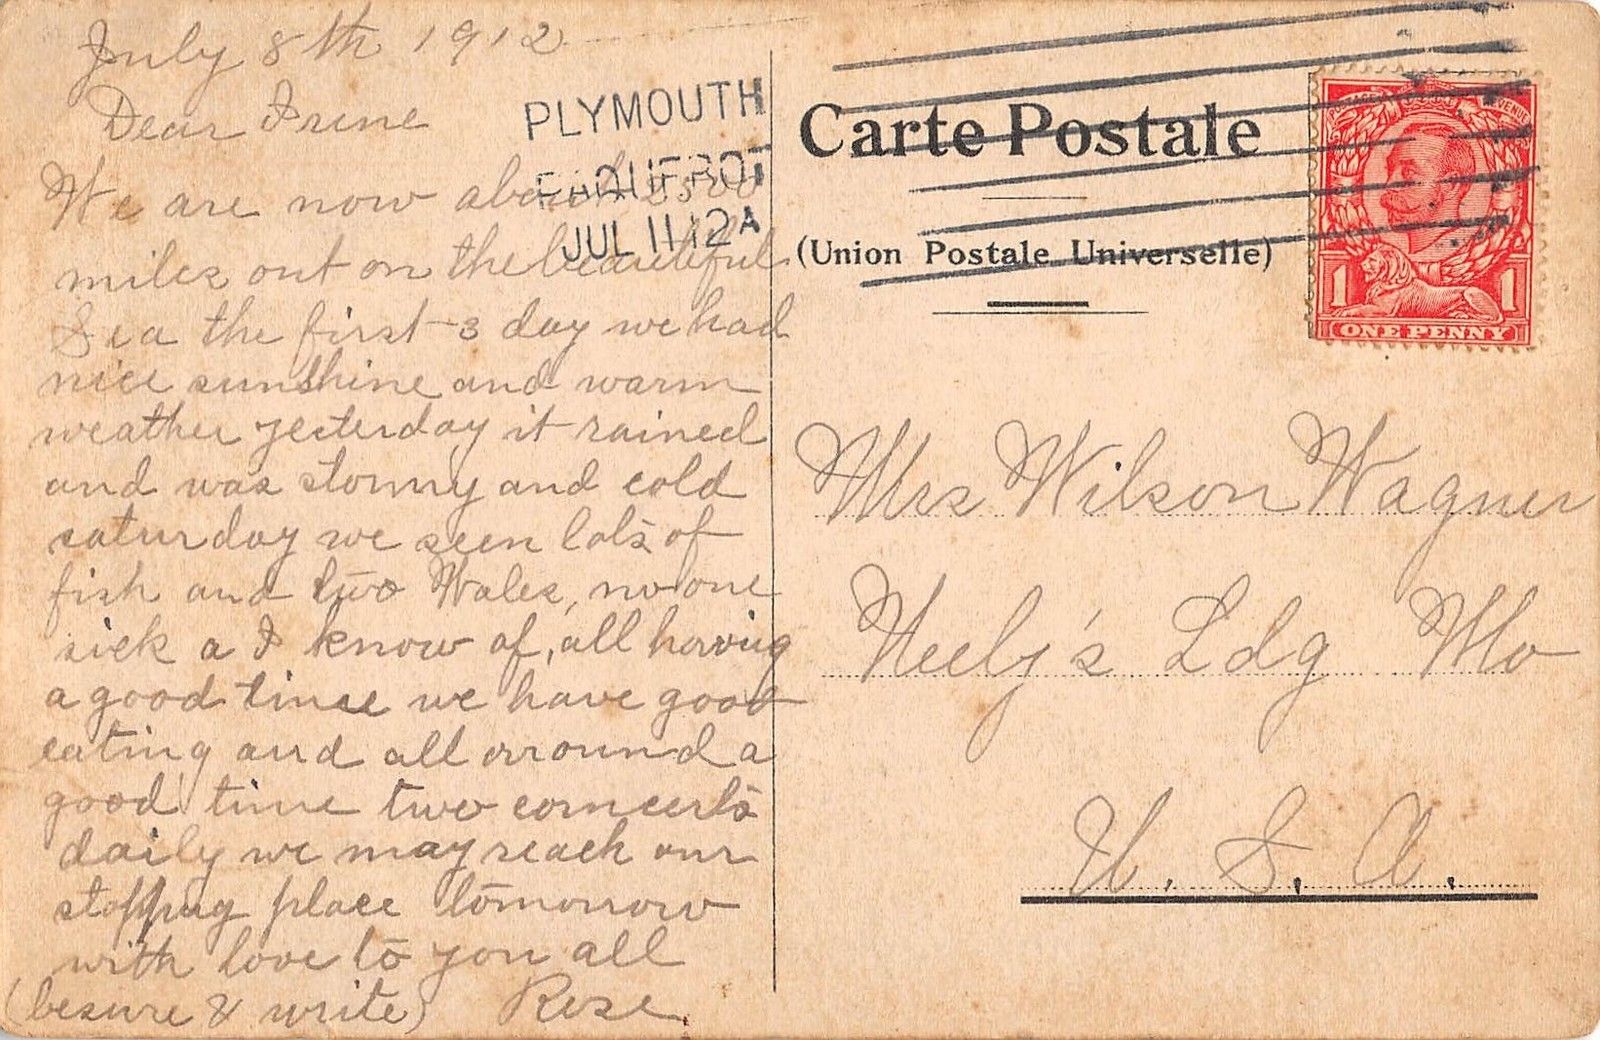 July 8th 1912
Dear Irene
We are now about 2500
miles out on the beautiful
Sea the first 3 day we had
nice sunshine and warm
weather yesterday it rained
and was stormy and cold
saturday we seen lots of
fish and two Wales, no one
sick a I know of, all having
a good time we have good
eating and all arround a
good time two concerts
daily we may reach our
stopping place tomorrow
with love to you all
(besure & write) Rose
PLYMOUTH
PAQUEBOT
JUL 11 12 A
Carte Postale
(Union Postale Universelle)
POSTAGE REVENUE
1 1
ONE PENNY
Mrs Wilson Wagner
Neely's Ldg Mo
U. S. A.